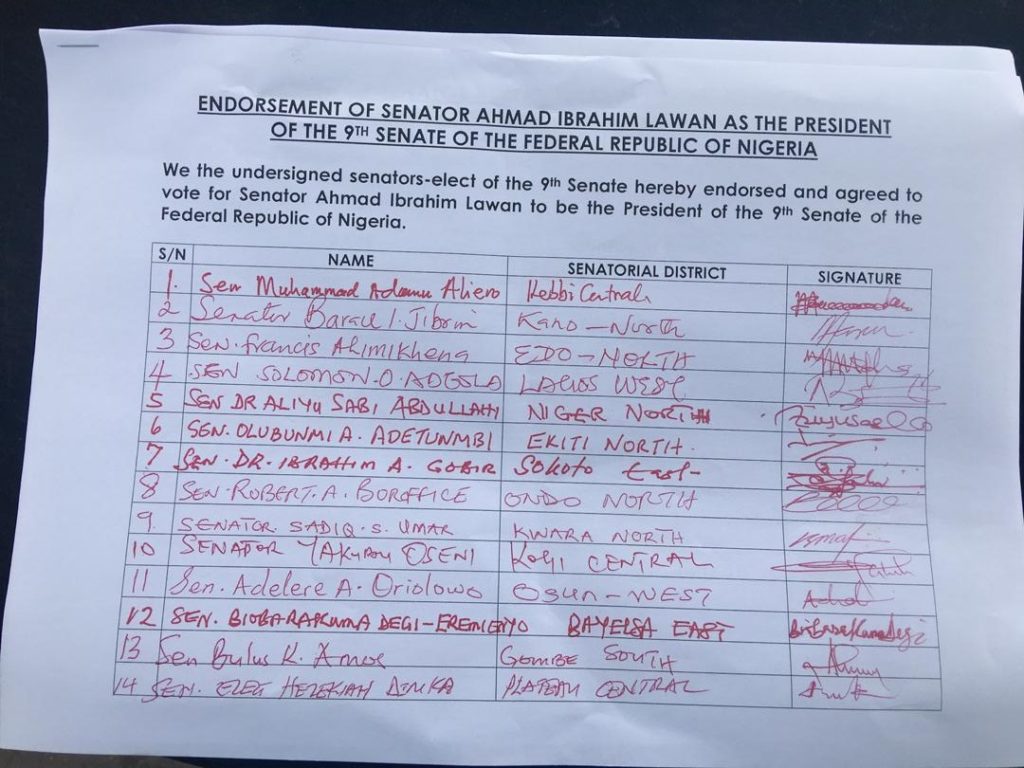 ENDORSEMENT OF SENATOR AHMAD IBRAHIM LAWAN AS THE PRESIDENT
OF THE 9TH SENATE OF THE FEDERAL REPUBLIC OF NIGERIA
We the undersigned senators-elect of the 9th Senate hereby endorsed and agreed to
vote for Senator Ahmad Ibrahim Lawan to be the President of the 9th Senate of the
Federal Republic of Nigeria.
S/N NAME SENATORIAL DISTRICT SIGNATURE
1. Sen Muhammad Adamu Aliero Kebbi Central
2 Senator Barau I. Jibrin Kano - North
3 Sen. Francis Alimikhena EDO - NORTH
4 SEN SOLOMON. O. ADEOLA LAGOS WEST
5 SEN DR ALIYU SABI ABDULLAHI NIGER NORTH
6 SEN. OLUBUNMI A. ADETUNMBI EKITI NORTH.
7 SEN. DR. IBRAHIM A. GOBIR Sokoto East
8 SEN. ROBERT. A. BOROFFICE ONDO NORTH
9. SENATOR. SADIQ. S. UMAR KWARA NORTH
10 SENATOR YAKUBU OSENI KOGI CENTRAL
11 Sen. Adelere A. Oriolowo Osun - WEST
12 SEN. BIOBARAKUMA DEGI-EREMIENYO BAYELSA EAST
13 Sen Bulus K. Amos GOMBE SOUTH
14 SEN. HEZEKIAH DIMKA PLATEAU CENTRAL